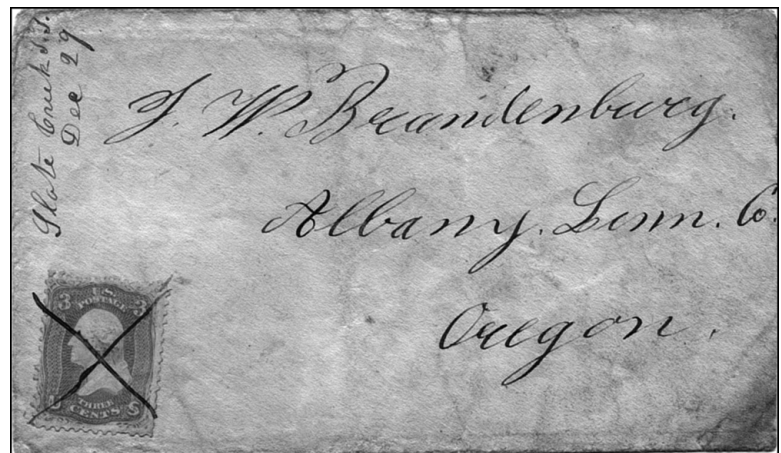 Slate Creek I.T.
Dec 29
J. W. Brandenburg.
Albany. Linn. Co.
Oregon.
3 U.S. 3
POSTAGE
THREE
U CENTS S